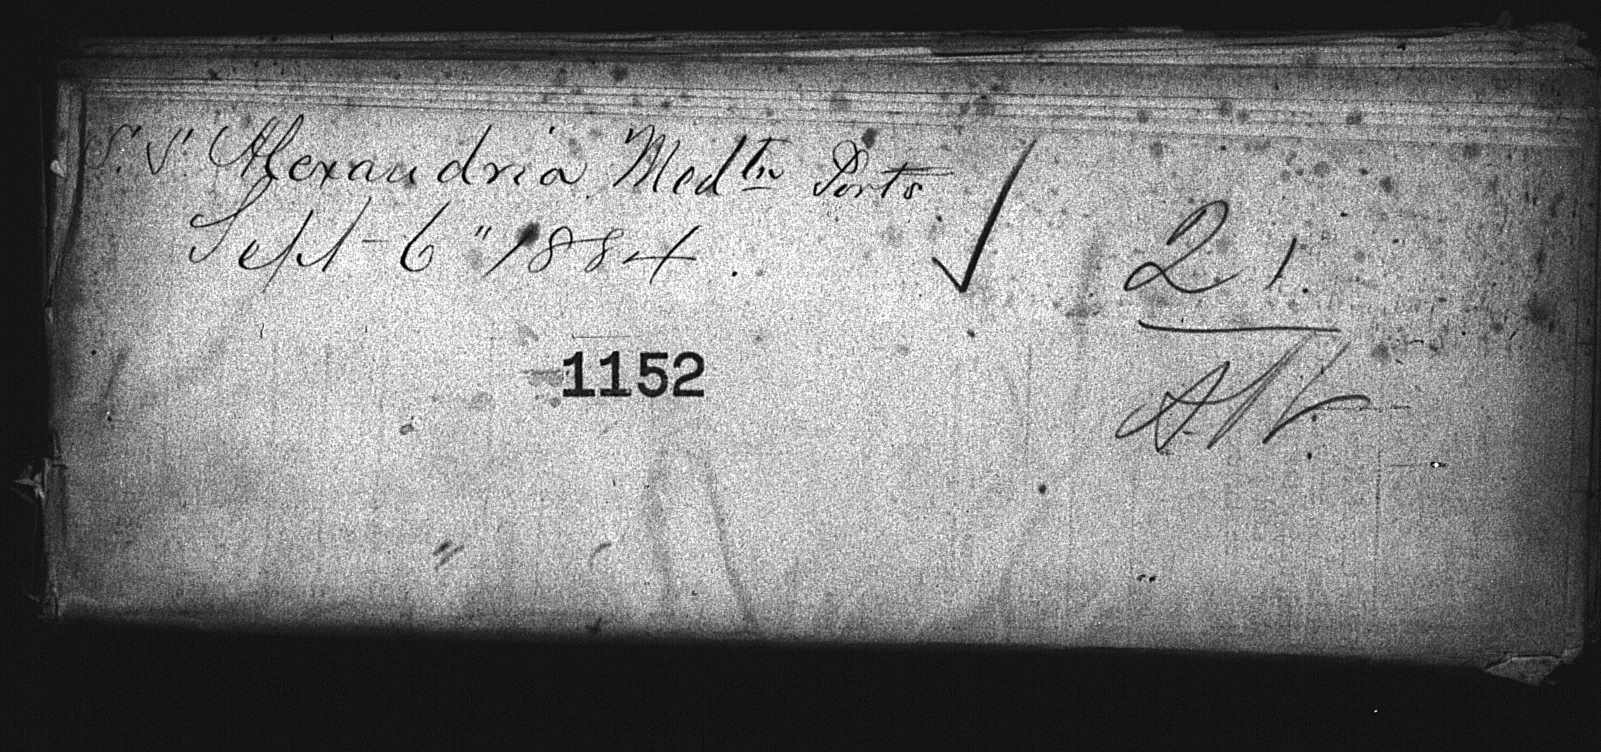 S. S. Alexandria Medtn Ports
Sept - 6" 1884.
21.
1152